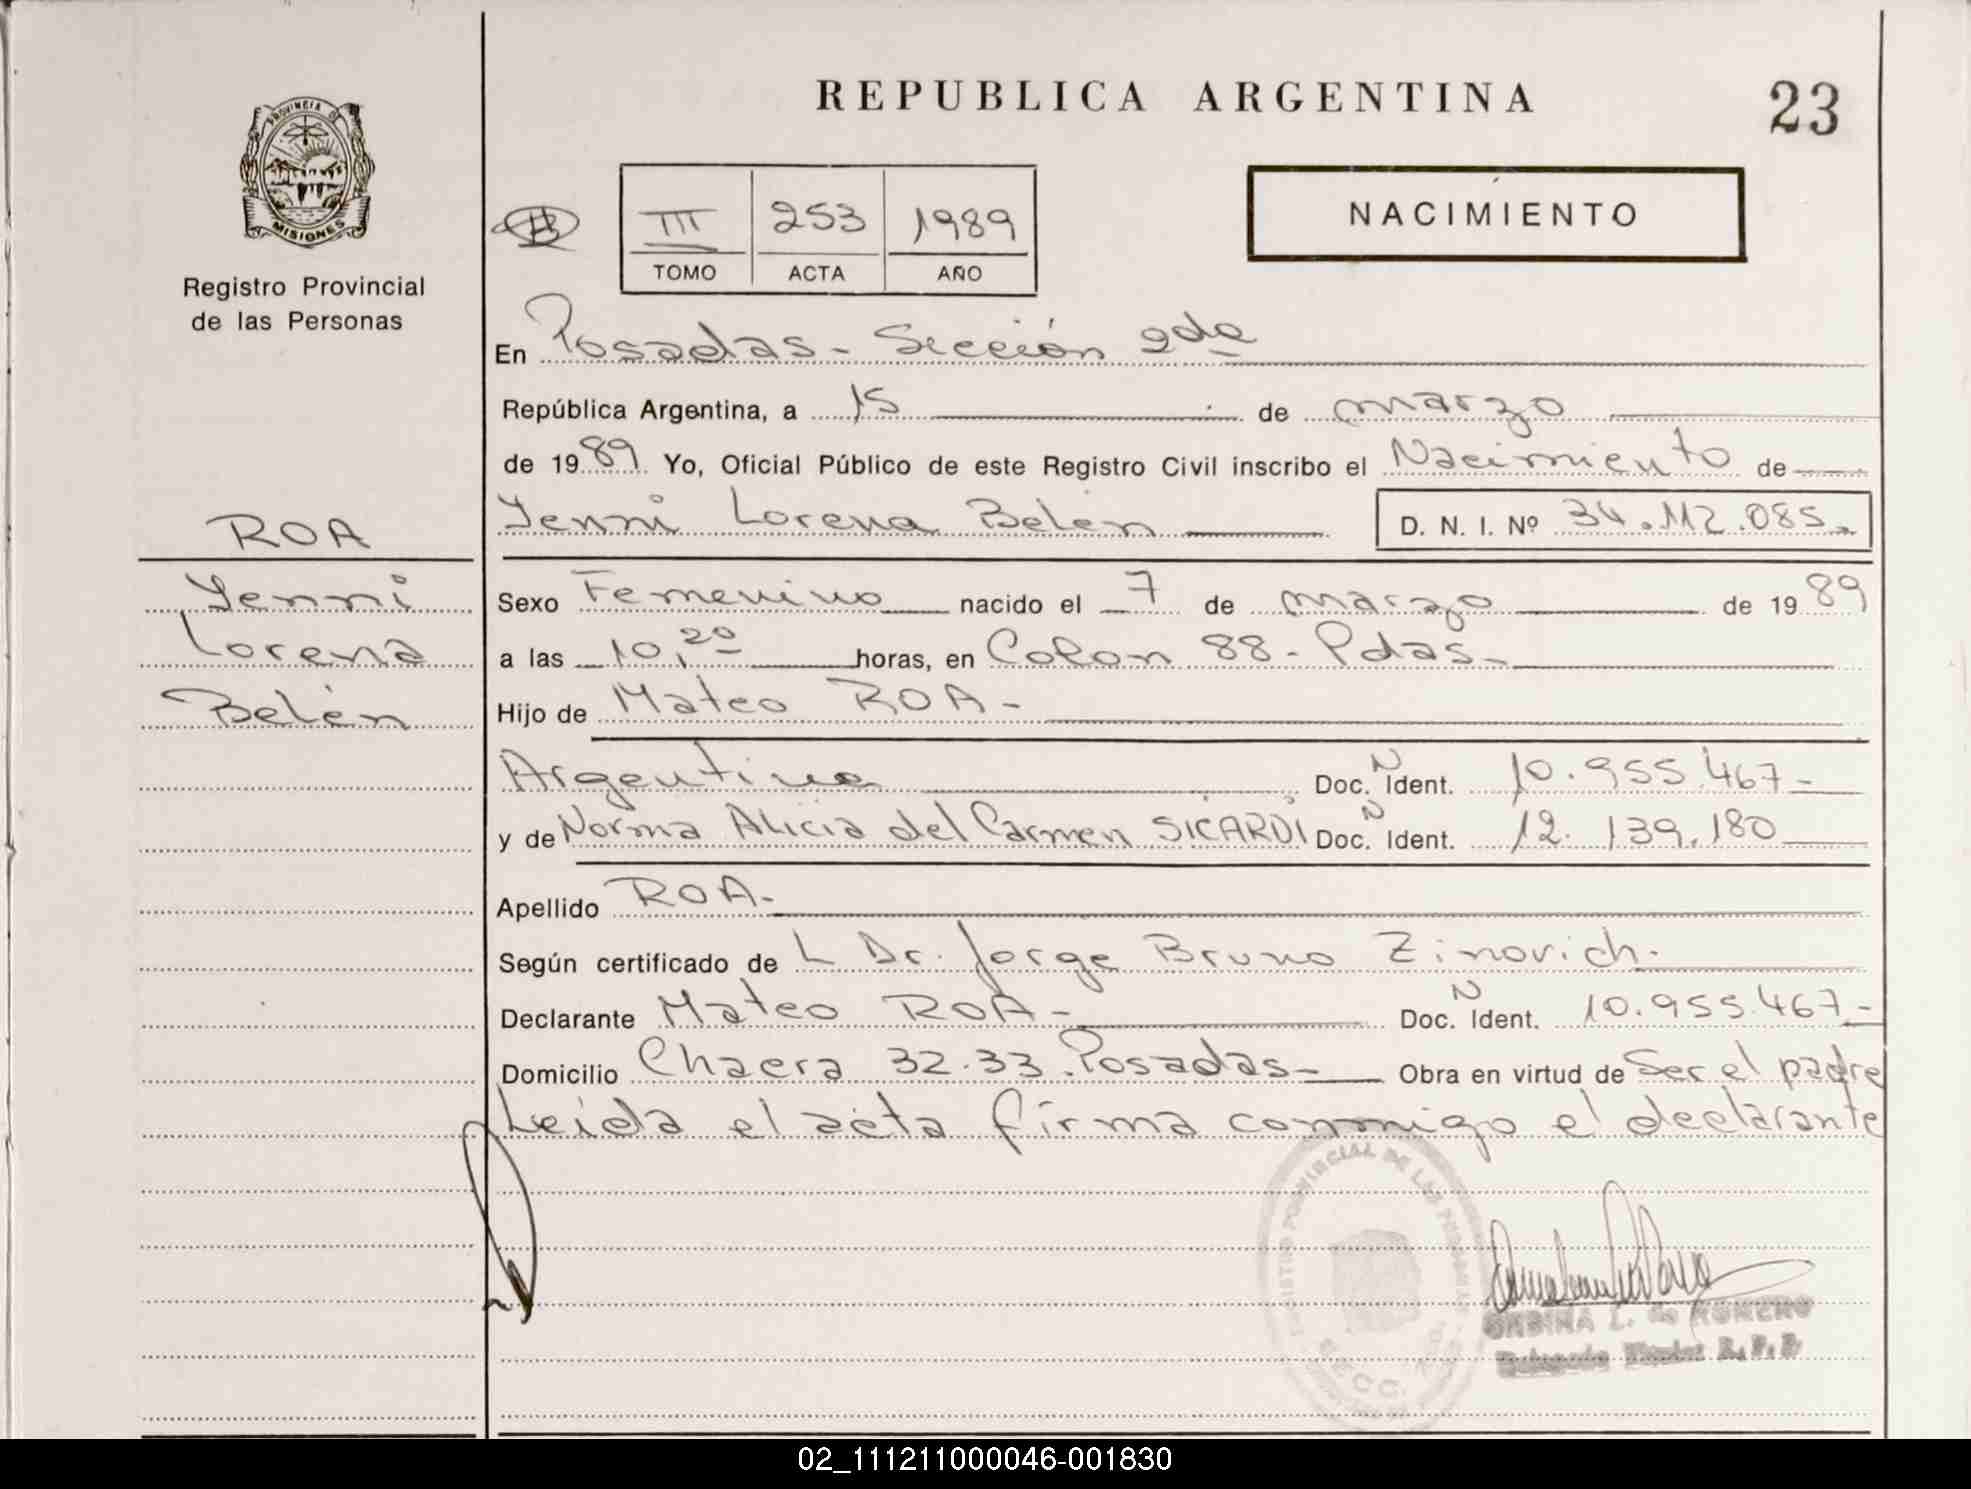 REPUBLICA ARGENTINA
23
PROVINCIA DE
MISIONES
Registro Provincial
de las Personas
III 253 1989
TOMO ACTA AÑO
NACIMIENTO
En Posadas - Sección 2da
República Argentina, a 15 de marzo
de 1989 Yo, Oficial Público de este Registro Civil inscribo el Nacimiento de
Yenni Lorena Belén D. N. I. Nº 34.112.085.
ROA
Yenni
Lorena
Belén
Sexo Femenino nacido el 7 de marzo de 1989
a las 10,20 horas, en Colon 88 - Pdas -
Hijo de Mateo ROA -
Argentina Doc. N Ident. 10.955.467 -
y de Norma Alicia del Carmen SICARDI Doc. N Ident. 12.139.180
Apellido ROA -
Según certificado de L Dr. Jorge Bruno Zinovich.
Declarante Mateo ROA - Doc. N Ident. 10.955.467 -
Domicilio Chacra 32.33. Posadas - Obra en virtud de Ser el padre
Leída el acta firma conmigo el declarante
REGISTRO PROVINCIAL DE LAS PERSONAS
SECC.
L. de ROMERO
R. P. P.
02_111211000046-001830